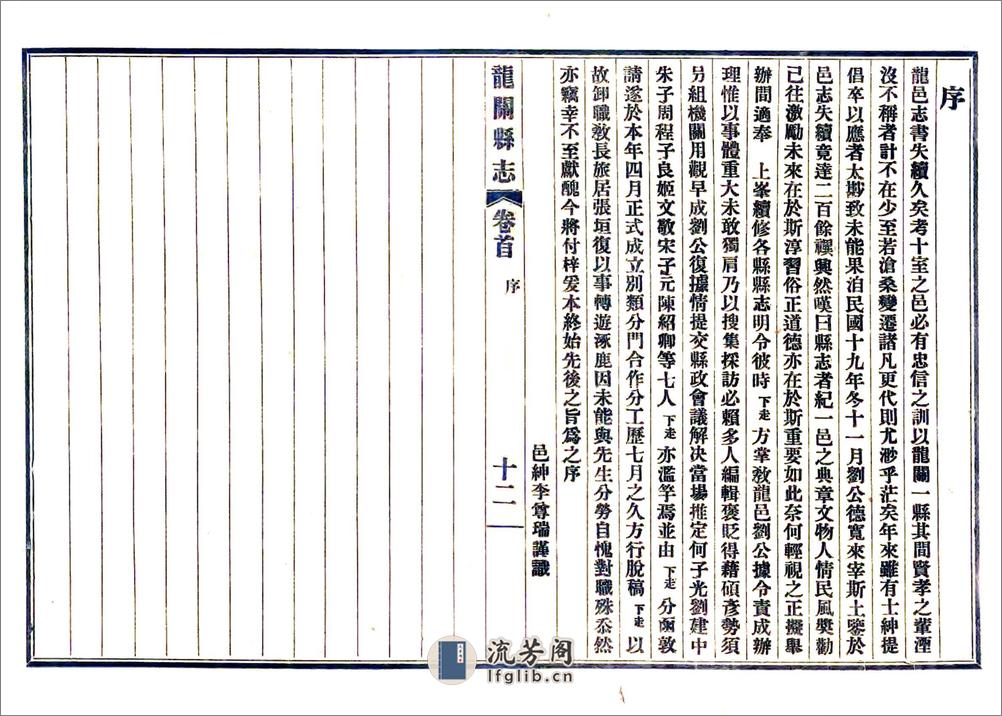 序
龍邑志書失續久矣考十室之邑必有忠信之訓以龍關一縣其間賢孝之輩湮
沒不稱者計不在少至若滄桑變遷諸凡更代則尤渺乎茫矣年來雖有士紳提
倡卒以應者太尠致未能果洎民國十九年冬十一月劉公德寬來宰斯土鑒於
邑志失續竟達二百餘禩興然嘆曰縣志者紀一邑之典章文物人情民風獎勸
已往激勵未來在於斯淳習俗正道德亦在於斯重要如此奈何輕視之正擬舉
辦間適奉 上峯續修各縣縣志明令彼時 下走 方掌敎龍邑劉公據令責成辦
理惟以事體重大未敢獨肩乃以搜集採訪必賴多人編輯褒貶得藉碩彥勢須
另組機關用觀早成劉公復據情提交縣政會議解决當場推定何子光劉建中
朱子周程子良姬文敬宋子元陳紹卿等七人 下走 亦濫竽焉並由 下走 分函敦
請遂於本年四月正式成立別類分門合作分工歷七月之久方行脫稿 下走 以
故卸職敎長旅居張垣復以事轉遊涿鹿因未能與先生分勞自愧對職殊忝然
亦竊幸不至獻醜今將付梓爰本終始先後之旨爲之序
邑紳李尊瑞謹識
龍關縣志 卷首 序 十二
流芳阁
lfglib.cn